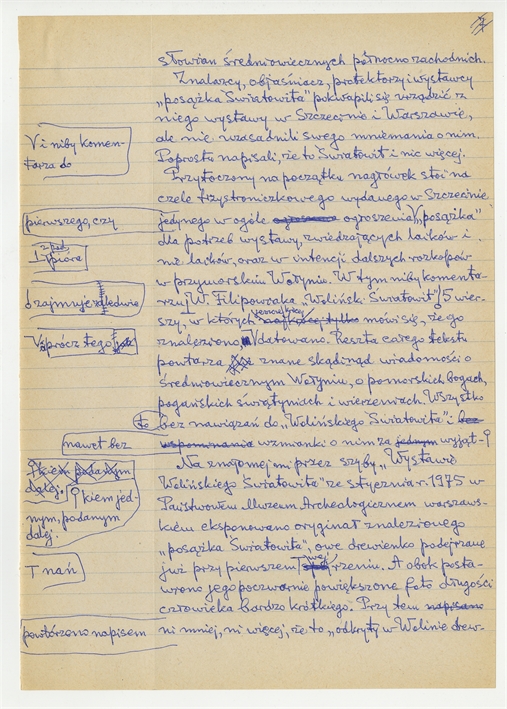 2
słowian średniowiecznych północno zachodnich.
Znalazcy, objaśniacz, protektorzy i wystawcy
„posążka Światowita" pokwapili się urządzić z
niego wystawy w Szczecinie i Warszawie,
ale nie uzasadnili swego mniemania o nim.
V i niby komen-
tarza do
Poprostu napisali, że to Światowit i nic więcej.
Przytoczony na początku nagrówek stoi na
czele trzystroniczkowego wydanego w Szczecinie
pierwszego, czy
jedynego w ogóle ogroszenia „posążka"
dla potrzeb wystawy, zwiedzających laików i
nie laików, oraz w intencji dalszych rozkopów
w przymorskim Wolynie. W tym niby komenta-
rzu W. Filipowiaka „Woliński Światowit" 5 wier-
szy, w których mówi się, że go
znaleziono, V datowano. Reszta całego tekstu
Vsprócz tego
powtarza znane skądinąd wiadomości o
średniowiecznym Wolyniu, o pomorskich bogach,
pogańskich świątyniach i wierzeniach. Wszystko
to
bez nawiązań do „Wolińskiego Światowita" i bez
nawet bez
wspominania wzmianki o nim za jednym wyjąt-
kiem podanym
dalej.
kiem jed-
nym, podanym
dalej.
Na znajomej mi przez szyby „Wystawie
Wolińskiego Światowita" ze stycznia r. 1975 w
Państwowem Muzeum Archeologicznem warszaws-
kiem eksponowano oryginał znalezionego
„posążka Światowita", owe drewienko podejrzane
T nań
już przy pierwszem wejrzeniu. A obok posta-
wiono jego poczwarnie powiększone foto długości
człowieka bardzo krótkiego. Przy tem napisano
powtórzono napisem
ni mniej, ni więcej, że to „odkryty w Wolinie drew-